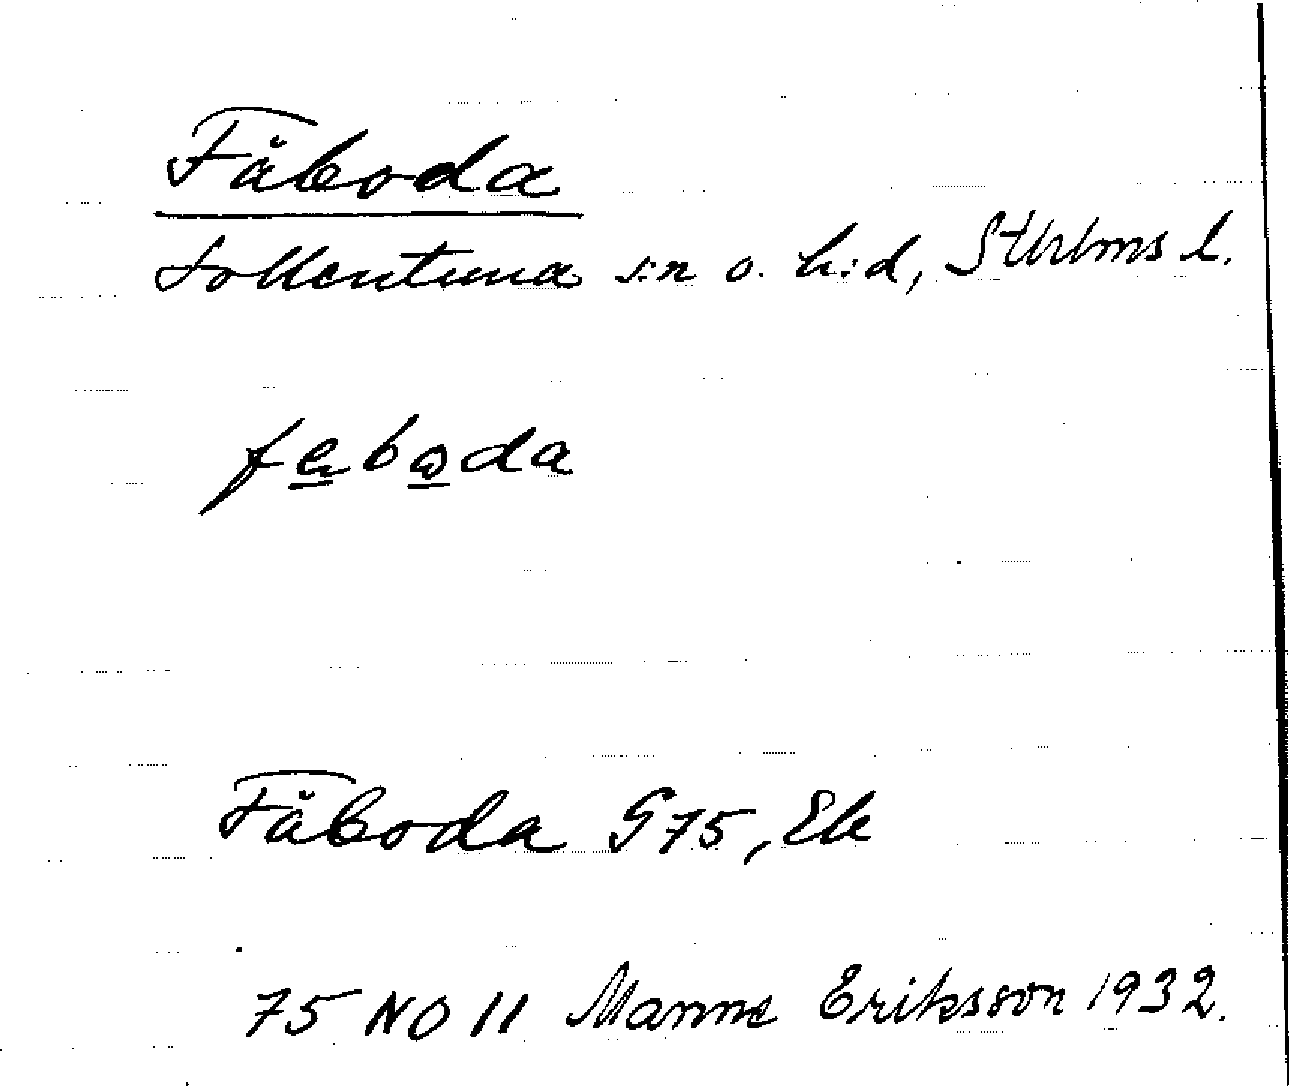 Fäboda
Sollentuna s:n o. h:d, Sthlms l.
fäboda
Fäboda G75, Ek
75 NO 11 Manne Eriksson 1932.